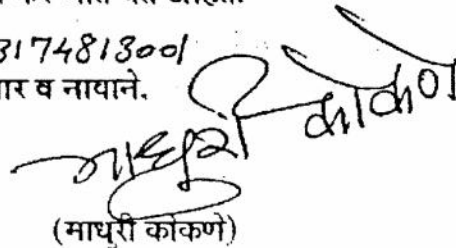 317481300१
व नायाने.
माधुरी कोकणे
(माधुरी कोकणे)